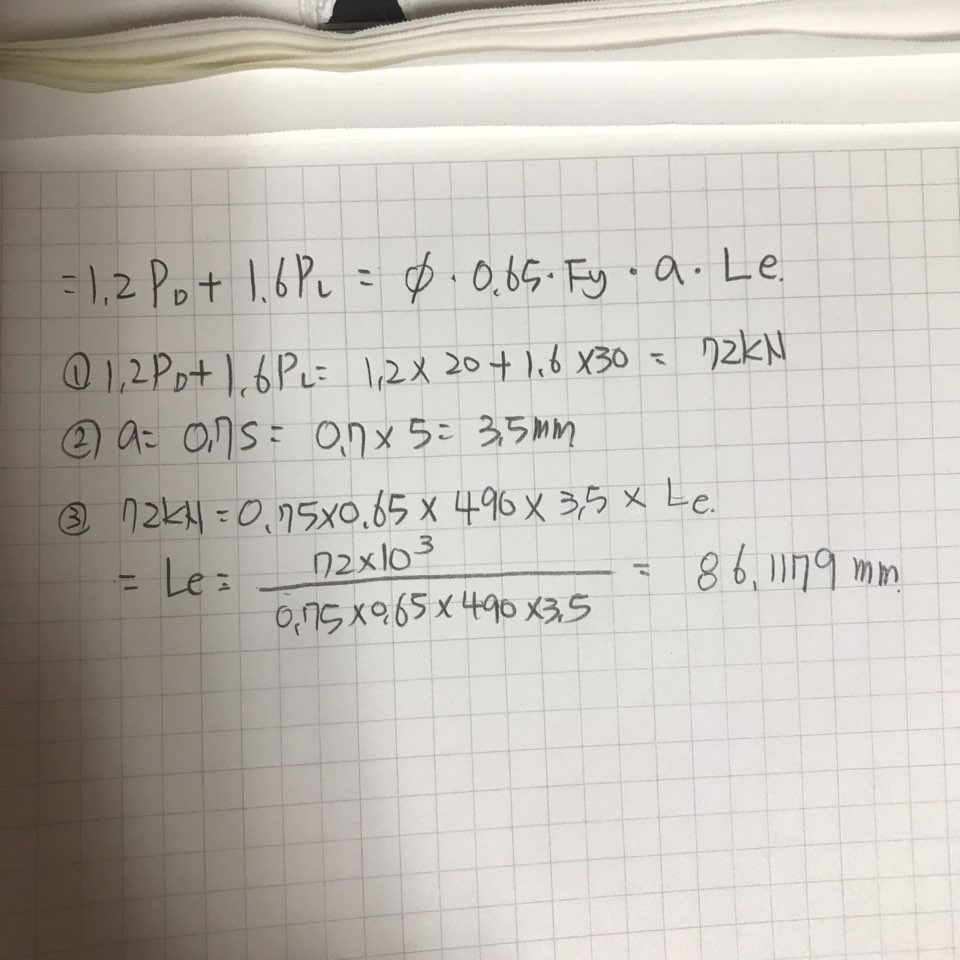 = 1.2 P_D + 1.6 P_L = ϕ · 0.65 · Fy · a · Le.
① 1,2P_D + 1,6P_L = 1,2 × 20 + 1.6 × 30 = 72kN
② a = 0,7S = 0,7 × 5 = 3,5mm
③ 72kN = 0,75 × 0.65 × 490 × 3,5 × Le.
= Le = \frac{72 × 10^3}{0,75 × 0,65 × 490 × 3,5} = 86,1179 mm